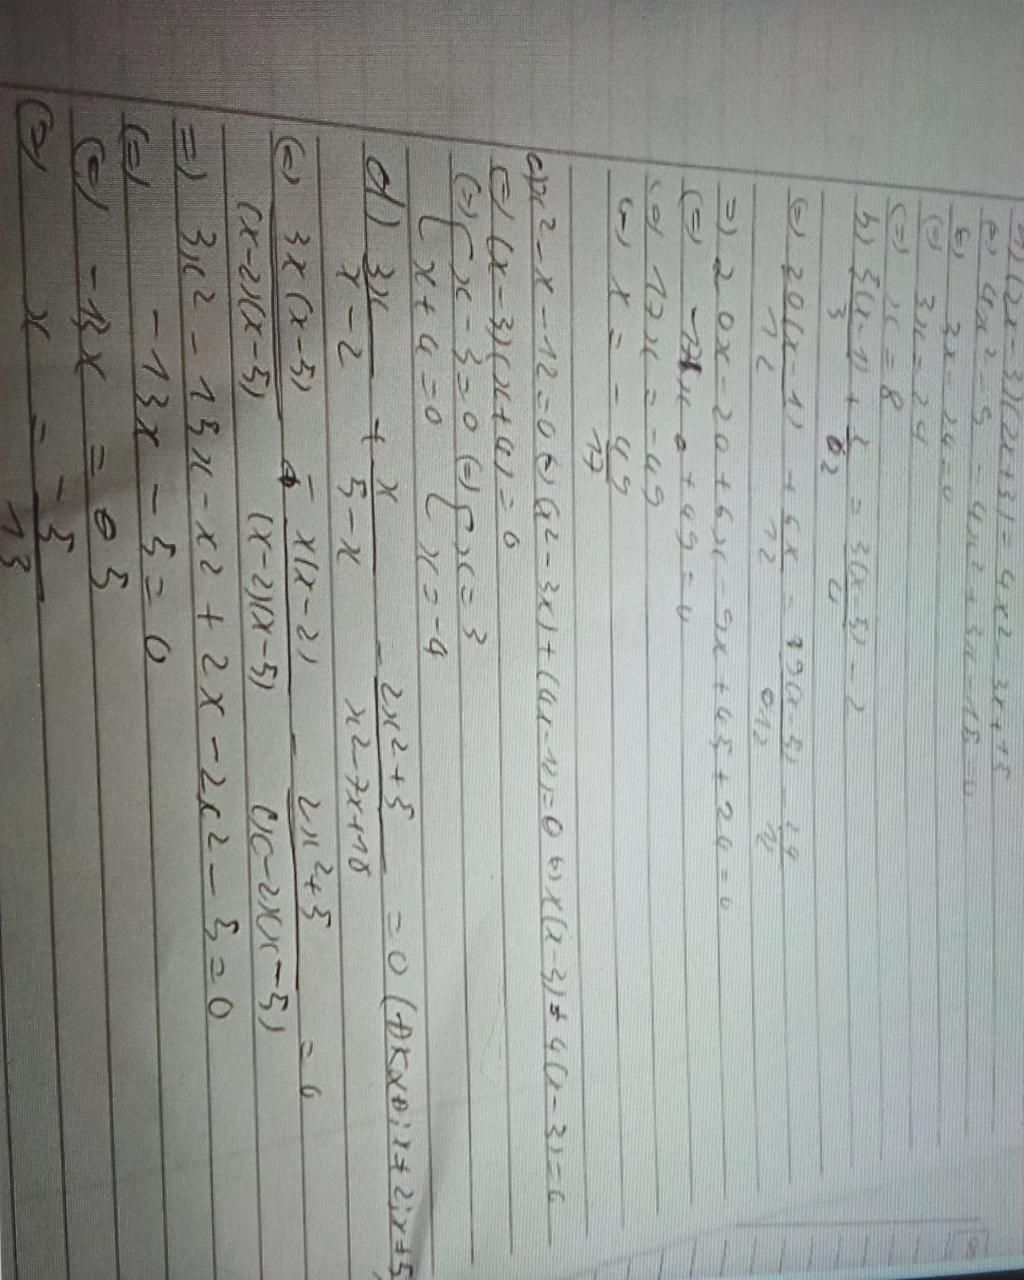 a) (2x-3)(2x+3) = 4x2-3x+15
(=) 4x2-9-4x2+3x-15=0
(=) 3x-24=0
(=) 3x=24
(=) x=8
b) 5(x-1)/3 + x/2 = 3(x-5)/4 - 2
(=) 20(x-1)/12 + 6x/12 = 9(x-5)/12 - 24/12
=) 20x-20+6x-9x+45+24=0
(=) 17x+49=0
(=) 17x=-49
(=) x=-49/17
c) x2-x-12=0 (=) (x2-3x)+(4x-12)=0 (=) x(x-3)+4(x-3)=0
(=) (x-3)(x+4)=0
(=) [x-3=0 (=) [x=3
[x+4=0 [x=-4
d) 3x/x-2 + x/5-x - 2x2+5/x2-7x+10 = 0 (ĐKXĐ: x≠2; x≠5
(=) 3x(x-5)/(x-2)(x-5) - x(x-2)/(x-2)(x-5) - 2x2+5/(x-2)(x-5) = 0
=) 3x2-15x-x2+2x-2x2-5=0
(=) -13x-5=0
(=) -13x=5
(=) x=-5/13